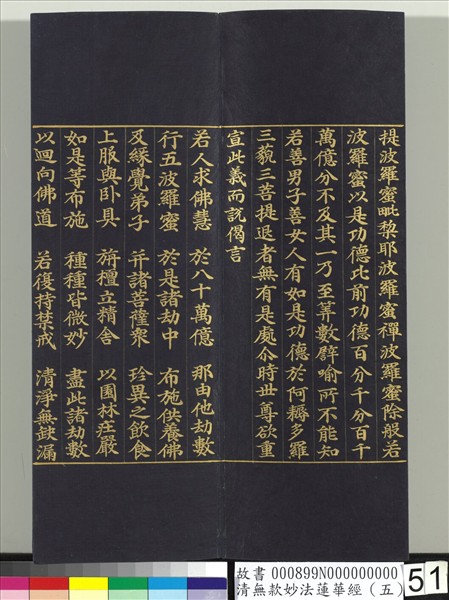 提波羅蜜毗棃耶波羅蜜禪波羅蜜除般若
波羅蜜以是功德比前功德百分千分百千
萬億分不及其一乃至筭數譬喻所不能知
若善男子善女人有如是功德於阿耨多羅
三藐三菩提退者無有是處尒時世尊欲重
宣此義而說偈言
若人求佛慧　於八十萬億　那由他劫數
行五波羅蜜　於是諸劫中　布施供養佛
及緣覺弟子　并諸菩薩眾　珍異之飲食
上服與卧具　旃檀立精舍　以園林莊嚴
如是等布施　種種皆微妙　盡此諸劫數
以迴向佛道　若復持禁戒　清淨無缺漏
故書 000899N000000000
清無款妙法蓮華經（五）
51